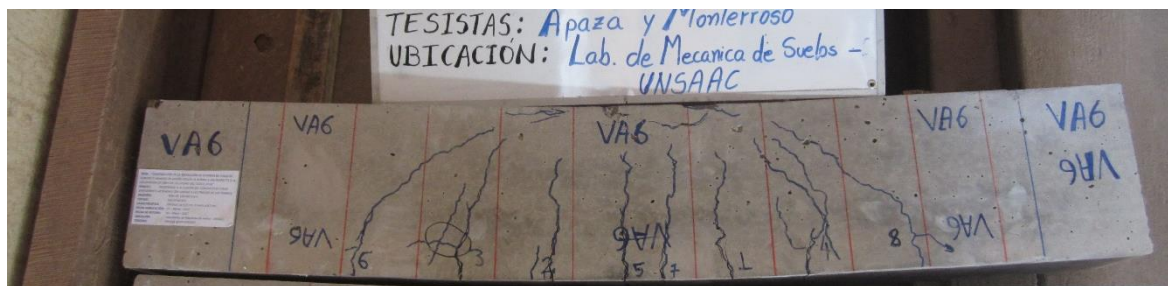 TESISTAS: Apaza y Monterroso
UBICACIÓN: Lab. de Mecanica de Suelos -
UNSAAC
VA6
VA6
VA6
VA6
VA6
VA6
VA6
VA6
VA6
VA6
6
3
2
5
7
1
4
8